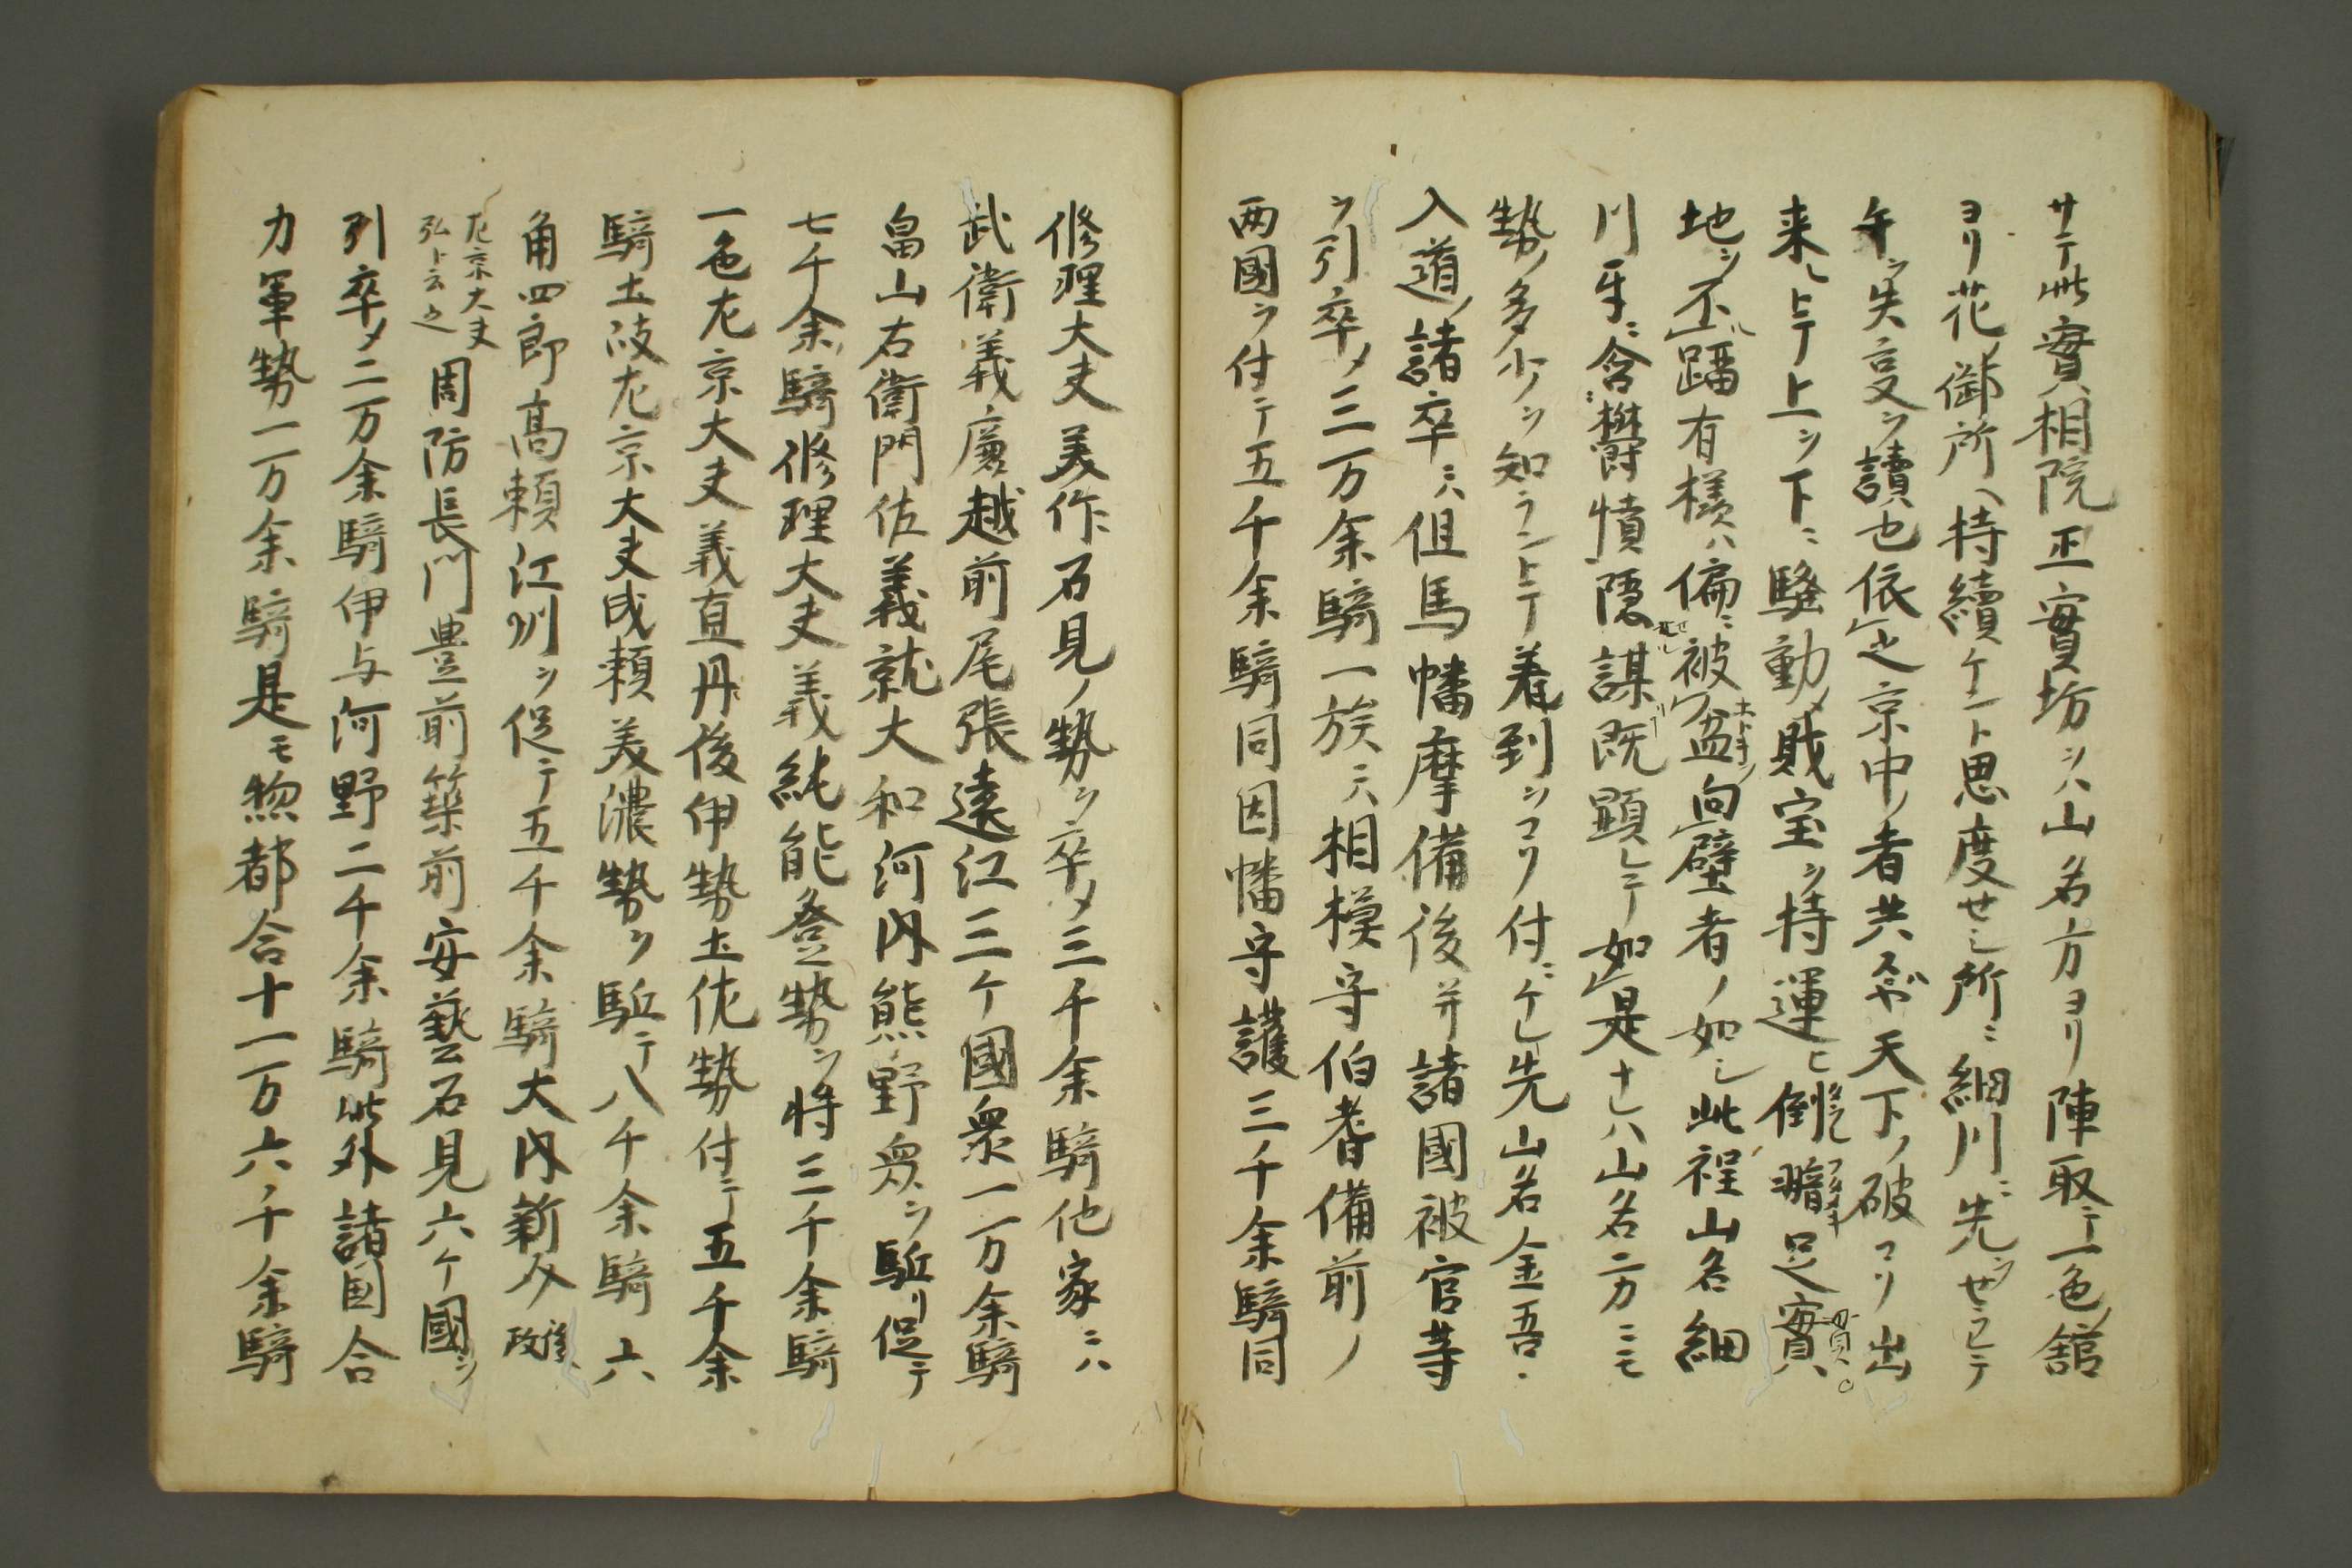 サテ此實相院正實坊ヲハ山名方ヨリ陣取テ一色ノ舘
ヨリ花ノ御所ヘ持續ケント思度セシ所ニ細川ニ先ヲセラレテ
手ヲ失言ヲ讀也依之京中ノ者共スハヤ天下ノ破コリ出
来レトテ上ヲ下ニ騒動メ賊宝ヲ持運ヒ倒レ足實
地ヲ不蹈有様ハ偏ニ被盆向壁者ノ如シ此程山名細
川互ニ含欝憤隠謀既顕レテ如是ナレハ山名方ニモ
勢ノ多少ヲ知ラントテ着到ヲコリ付ニケレ先山名金吾
入道ノ諸卒ニハ但馬幡摩備後并諸國被官等
ヲ引卒メ三万余騎一族ニハ相模守伯耆備前ノ
両國ヲ付テ五千余騎同因幡守護三千余騎同
修理大夫美作石見ノ勢ヲ卒メ三千余騎他家ニハ
武衛義廉越前尾張遠江三ケ國衆一万余騎
畠山右衛門佐義就大和河内熊野衆ヲ駈リ促テ
七千余騎修理大夫義純能登勢ヲ将三千余騎
一色左京大夫義直丹後伊勢土佐勢付テ五千余
騎土岐左京大夫成頼美濃勢ヲ駈テ八千余騎六
角四郎高頼江州ヲ促テ五千余騎大内新介政
左京大夫
弘ト云之
周防長門豊前築前安藝石見六ケ國ヲ
引卒メ二万余騎伊与河野二千余騎此外諸国合
力軍勢一万余騎是モ惣都合十一万六千余騎